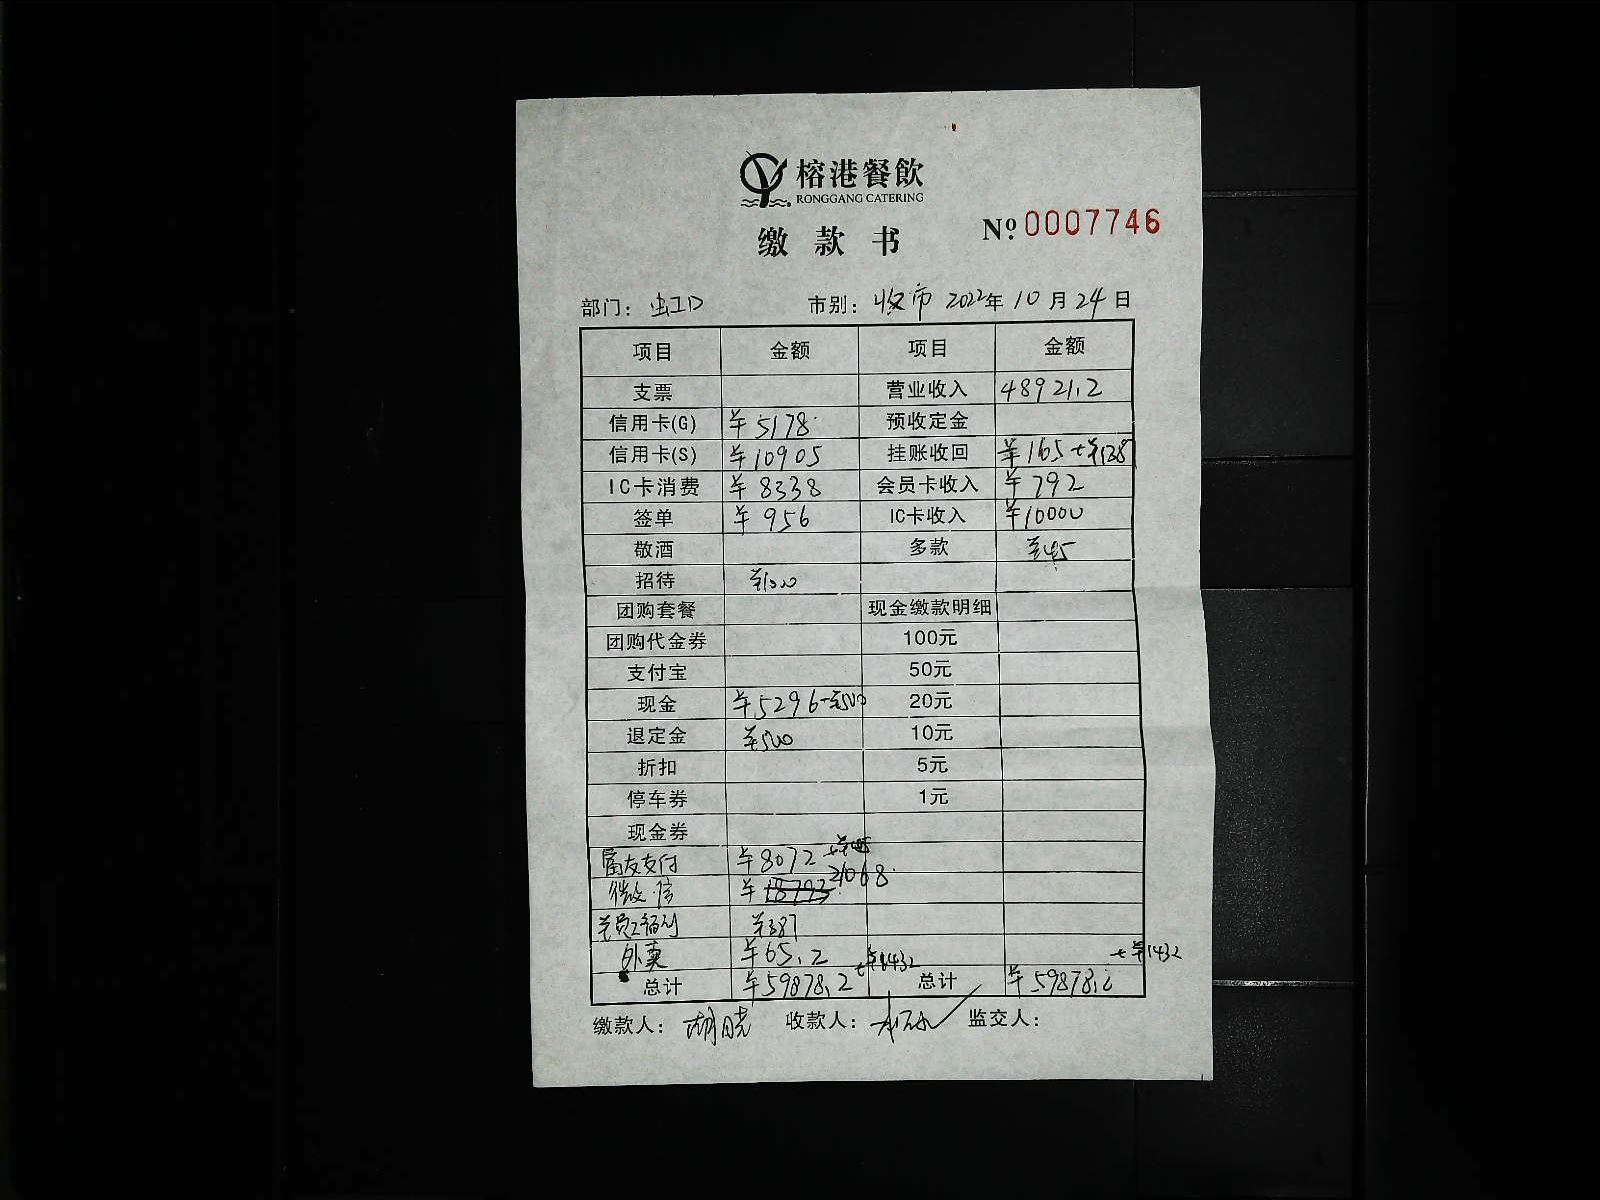 榕港餐飲
RONGGANG CATERING
缴款书
№ 0007746
部门：虹口 市别：收市 2022年10月24日
项目 金额 项目 金额
支票 营业收入 48921.2
信用卡(G) ¥5178 预收定金
信用卡(S) ¥10905 挂账收回 ¥165
IC卡消费 ¥8338 会员卡收入 ¥792
签单 ¥956 IC卡收入 ¥10000
敬酒 多款
招待
团购套餐 现金缴款明细
团购代金券 100元
支付宝 50元
现金 ¥5296-¥500 20元
退定金 ¥500 10元
折扣 5元
停车券 1元
现金券
富友支付 ¥8072
微信 ¥ 21068
¥387
外卖 ¥65.2
总计 ¥59878.2+¥1432 总计 ¥59878.2+¥1432
缴款人：胡晓 收款人： 监交人：